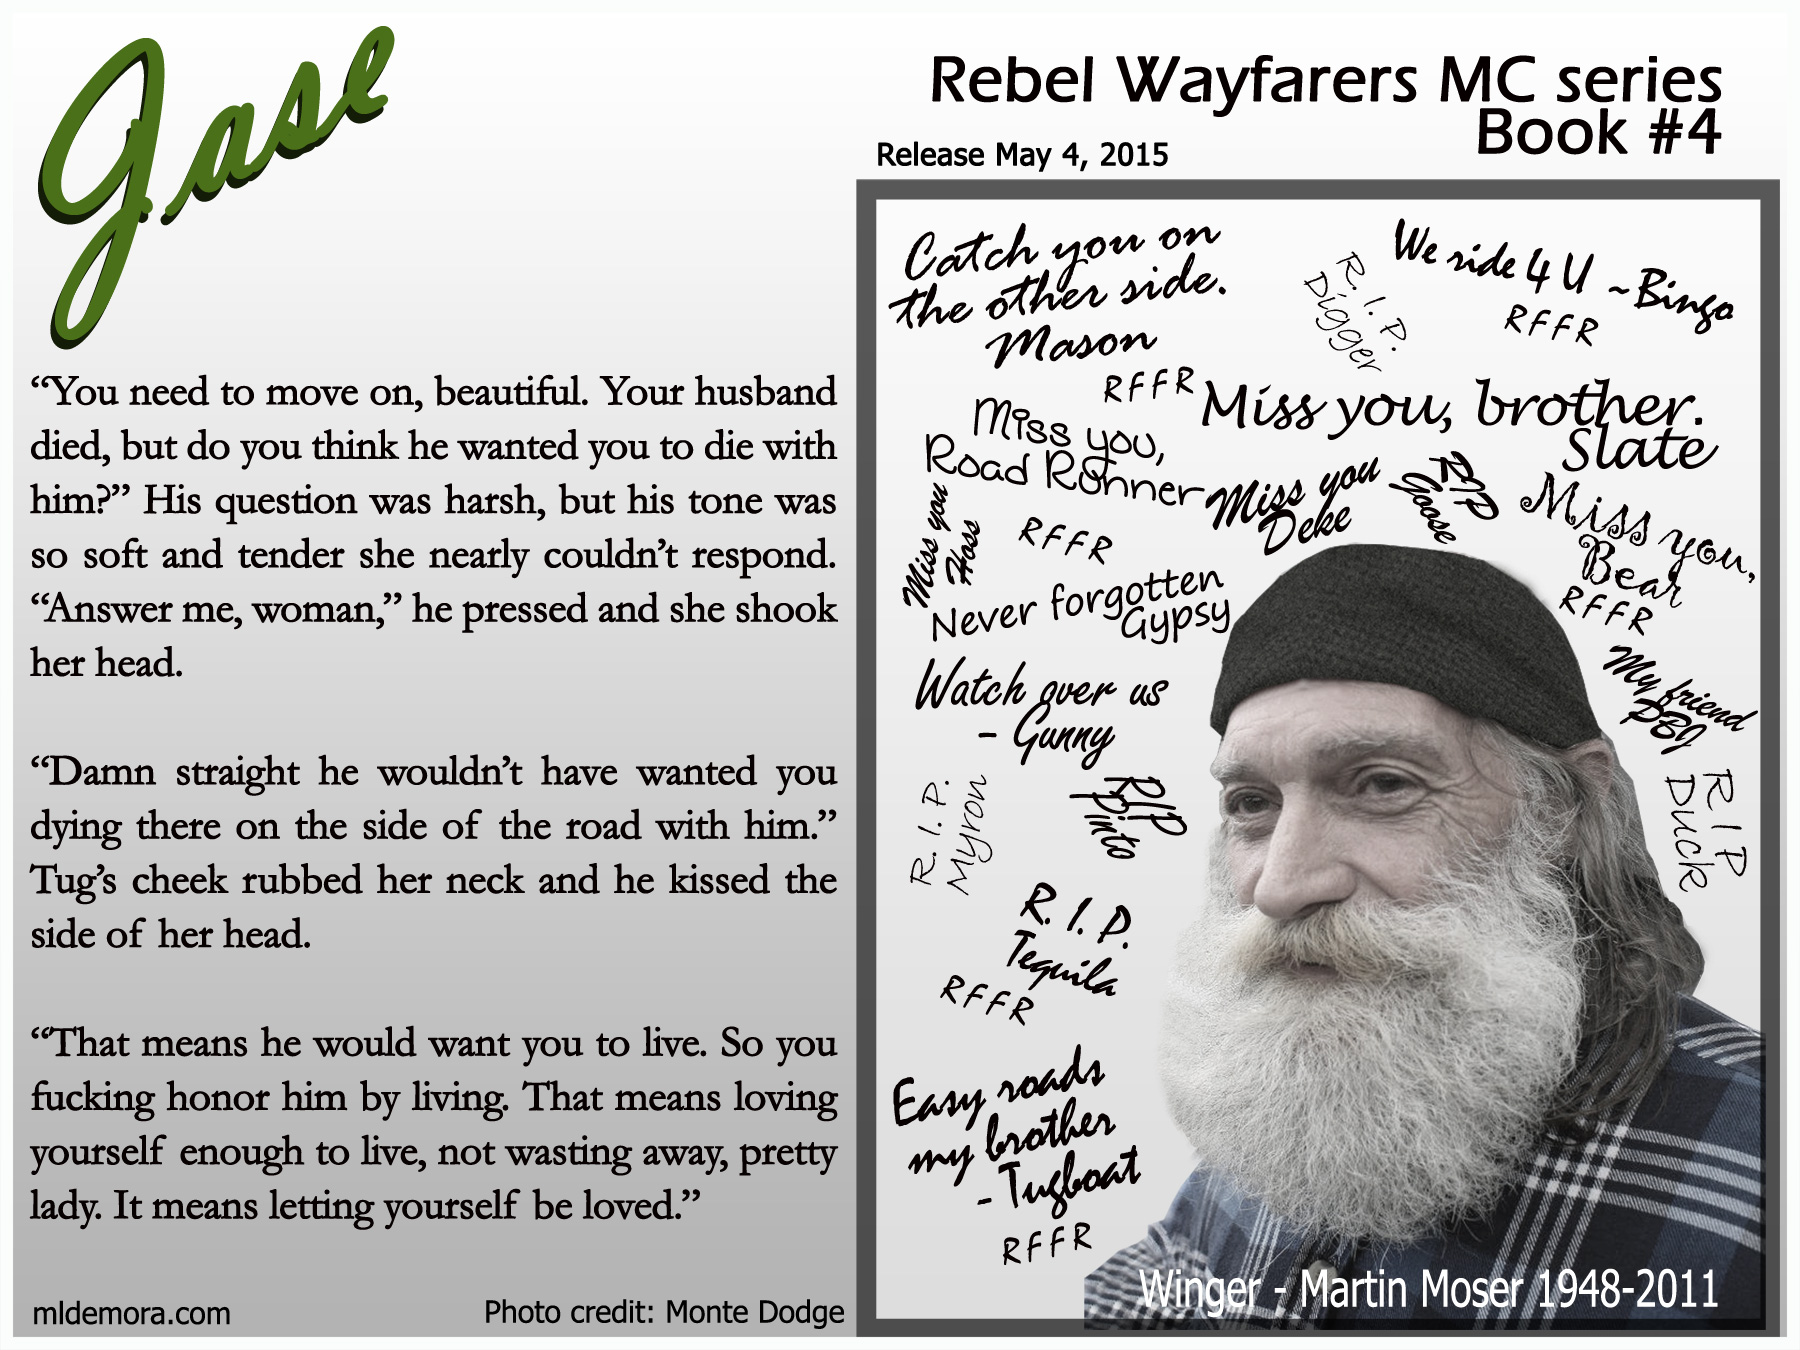 Jase
Rebel Wayfarers MC series
Book #4
Release May 4, 2015
“You need to move on, beautiful. Your husband
died, but do you think he wanted you to die with
him?” His question was harsh, but his tone was
so soft and tender she nearly couldn’t respond.
“Answer me, woman,” he pressed and she shook
her head.
“Damn straight he wouldn’t have wanted you
dying there on the side of the road with him.”
Tug’s cheek rubbed her neck and he kissed the
side of her head.
“That means he would want you to live. So you
fucking honor him by living. That means loving
yourself enough to live, not wasting away, pretty
lady. It means letting yourself be loved.”
mldemora.com
Photo credit: Monte Dodge
Catch you on
the other side.
Mason
RFFR
R. I. P.
Digger
We ride 4 U ~Bingo
RFFR
Miss you,
Road Runner
RFFR
Miss you, brother.
Slate
Miss you
Hoss
Miss you
Deke
RIP
Goose
Miss you,
Bear
RFFR
Never forgotten
Gypsy
Watch over us
- Gunny
My friend
PBJ
R. I. P.
Myron
RIP
Pinto
RIP
Duck
R. I. P.
Tequila
RFFR
Easy roads
my brother
- Tugboat
RFFR
Winger - Martin Moser 1948-2011